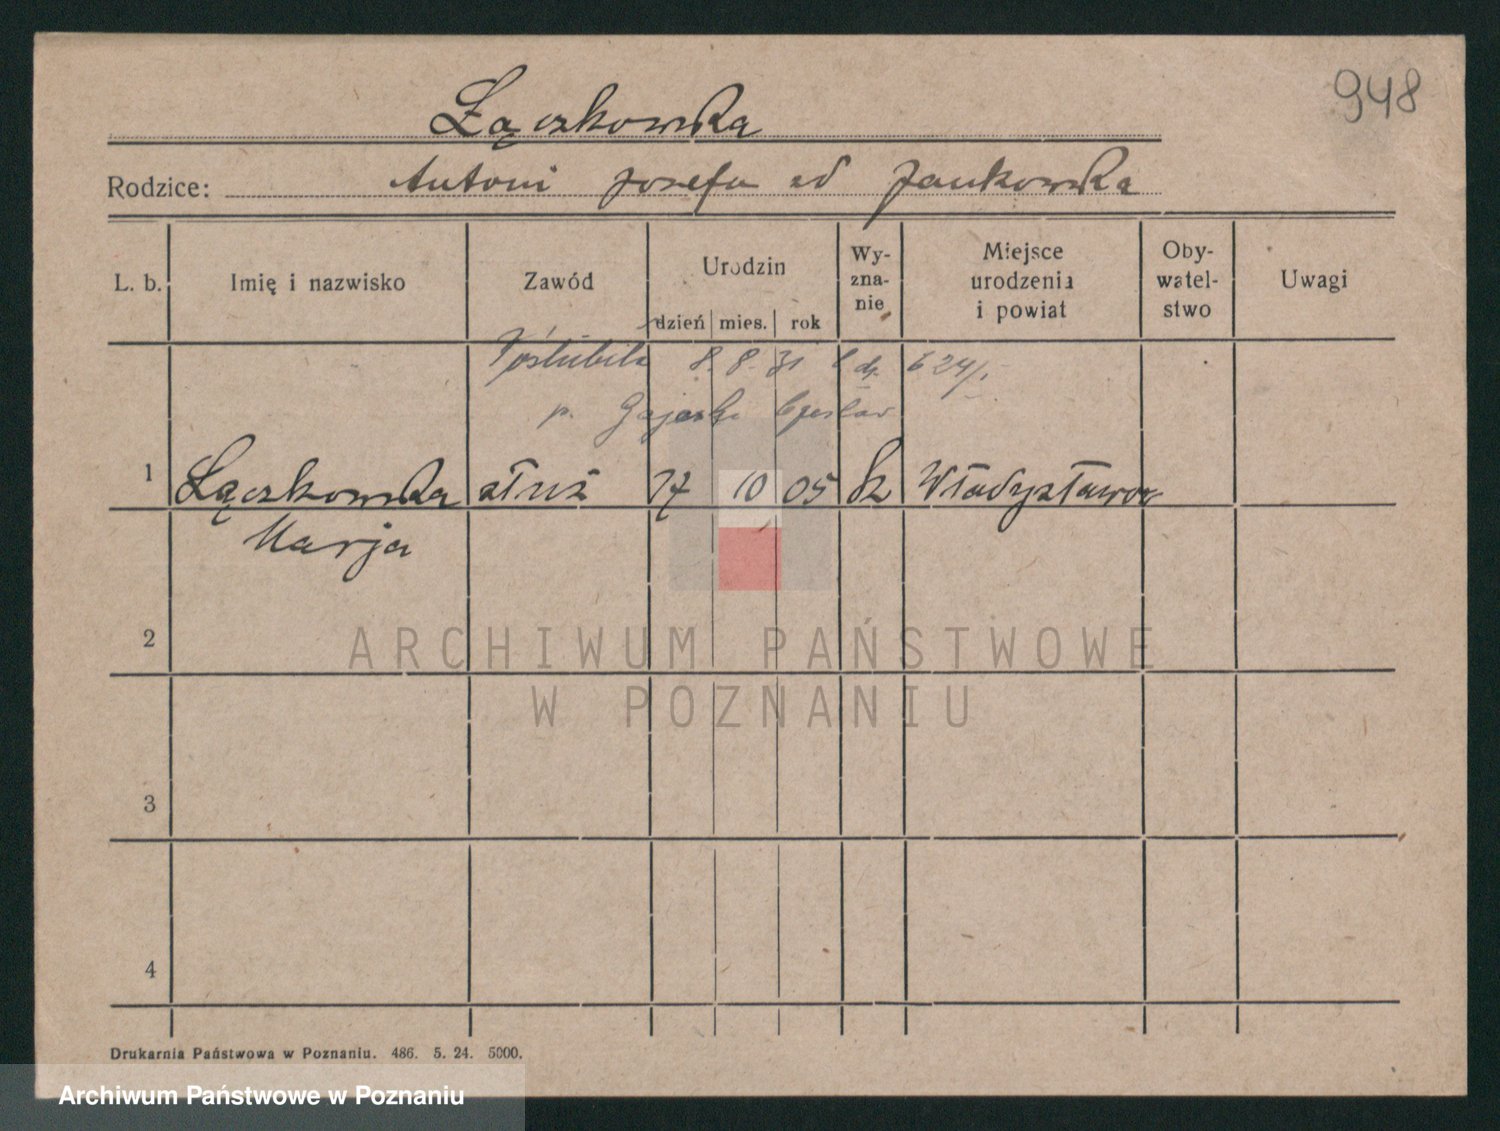 948
Łączkowska
Rodzice: Antoni Jozefa od Jankowska
L. b. Imię i nazwisko Zawód Urodzin dzień mies. rok Wy-zna-nie Miejsce urodzenia i powiat Oby-watel-stwo Uwagi
Poślubiła 8. 8. 31 l dz. 624/
p. Czesław
1 Łączkowska służ 17 10 05 rk Władysławow
Marja
2
ARCHIWUM PAŃSTWOWE
W POZNANIU
3
4
Drukarnia Państwowa w Poznaniu. 486. 5. 24. 5000.
Archiwum Państwowe w Poznaniu